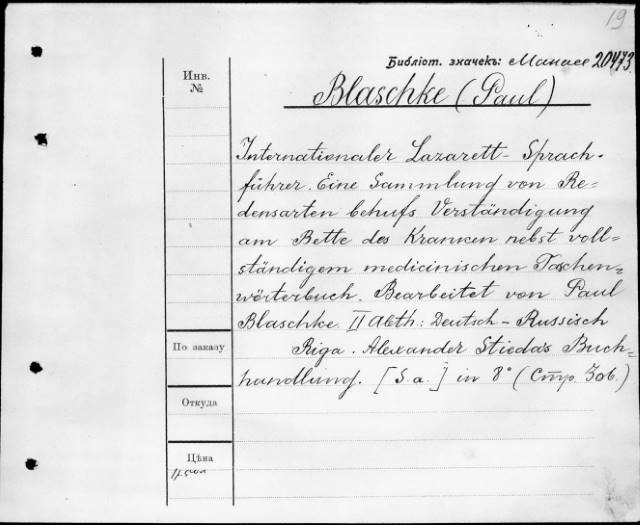 19
Библіот. значекъ: Манасе 20473.
Инв.
№
Blaschke (Paul)
Internationaler Lazarett-Sprach-
führer. Eine Sammlung von Re=
densarten behufs Verständigung
am Bette des Kranken nebst voll=
ständigem medicinischen Taschen=
wörterbuch. Bearbeitet von Paul
Blaschke. II Abth: Deutsch-Russisch
По заказу
Riga. Alexander Stiedas Buch=
handlung. [S.a.] in 8° (Стр. 306.)
Откуда
Цѣна